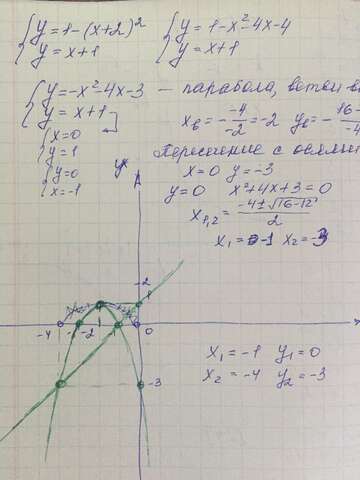 {y = 1-(x+2)² {y = 1-x²-4x-4
{y = x+1 {y = x+1
{y = -x²-4x-3 — парабола, ветви
{y = x+1
xв = - -4/-2 = -2 yв = - 16-
{x=0
{y=1
Пересечение с осями
{y=0
{x=-1
x=0 y=-3
y=0 x²+4x+3=0
x1,2 = -4±√16-12/2
x1 = -1 x2 = -3
y
-2
1
-4 -2 0
-3
x1 = -1 y1 = 0
x2 = -4 y2 = -3